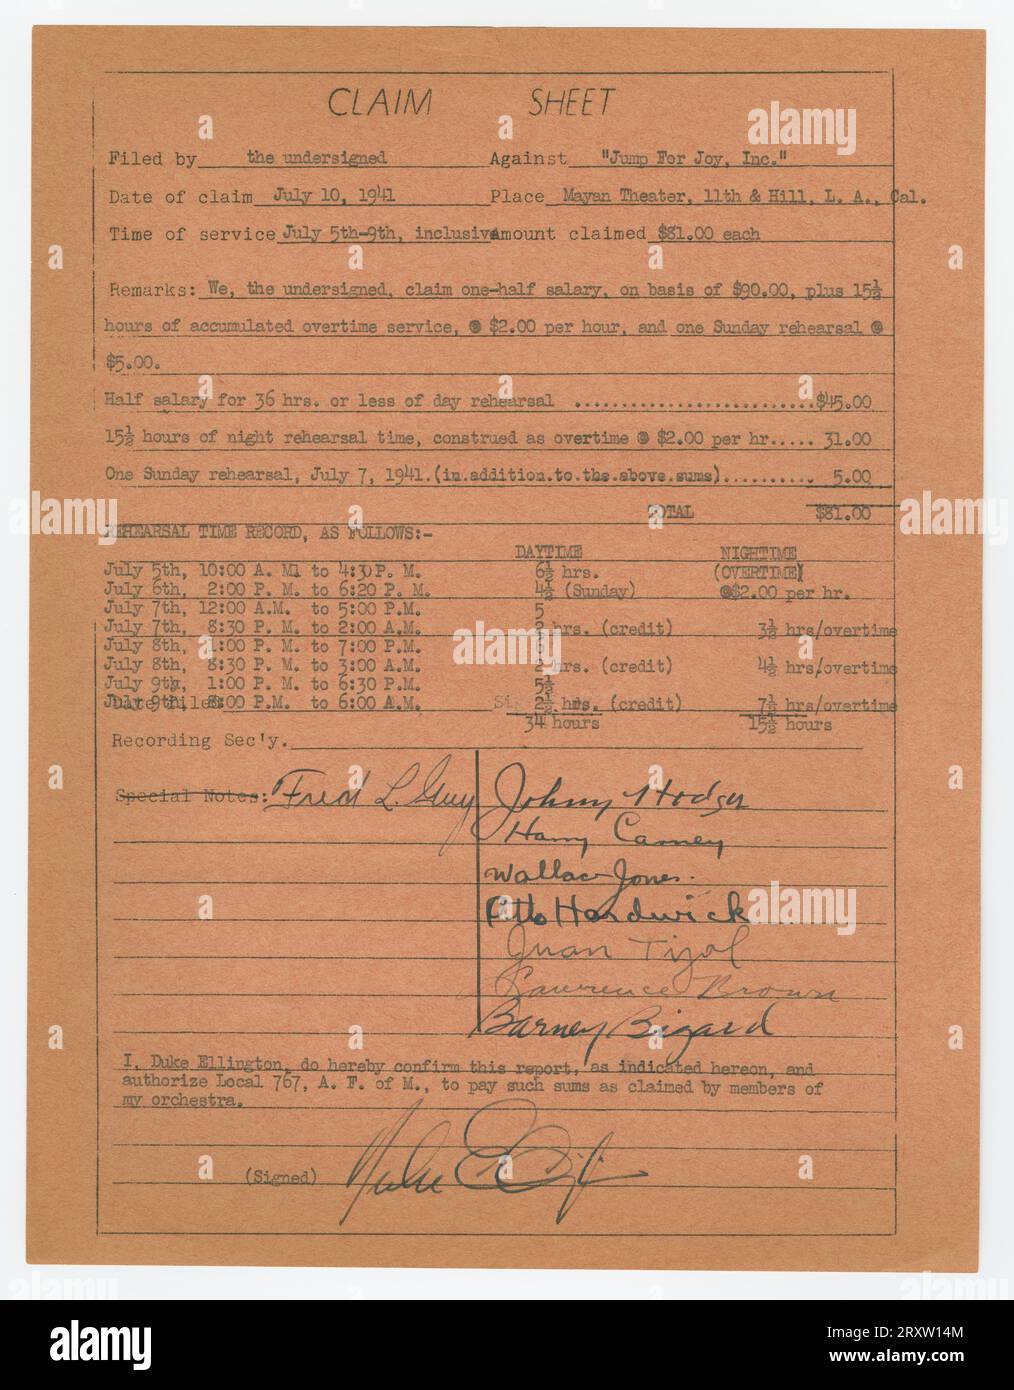 CLAIM SHEET
Filed by the undersigned Against "Jump For Joy, Inc."
Date of claim July 10, 1941 Place Mayan Theater, 11th & Hill, L. A., Cal.
Time of service July 5th-9th, inclusive Amount claimed $81.00 each
Remarks: We, the undersigned, claim one-half salary, on basis of $90.00, plus 15½
hours of accumulated overtime service, @ $2.00 per hour, and one Sunday rehearsal @
$5.00.
Half salary for 36 hrs. or less of day rehearsal ........................$45.00
15½ hours of night rehearsal time, construed as overtime @ $2.00 per hr..... 31.00
One Sunday rehearsal, July 7, 1941.(in.addition.to.the.above.sums).......... 5.00
TOTAL $81.00
REHEARSAL TIME RECORD, AS FOLLOWS:-
DAYTIME NIGHTIME
July 5th, 10:00 A. M. to 4:30 P. M. 6½ hrs. (OVERTIME)
July 6th, 2:00 P. M. to 6:20 P. M. 4½ (Sunday) @$2.00 per hr.
July 7th, 12:00 A.M. to 5:00 P.M. 5
July 7th, 8:30 P. M. to 2:00 A.M. 2 hrs. (credit) 3½ hrs/overtime
July 8th, 1:00 P. M. to 7:00 P.M. 6
July 8th, 8:30 P. M. to 3:00 A.M. 2 hrs. (credit) 4½ hrs/overtime
July 9th, 1:00 P. M. to 6:30 P.M. 5½
July 9th, 8:00 P.M. to 6:00 A.M. 2½ hrs. (credit) 7½ hrs/overtime
Date Filed
34 hours 15½ hours
Recording Sec'y.
Special Notes: Fred L. Guy Johnny Hodges
Harry Carney
Wallace Jones.
Otto Hardwick
Juan Tizol
Lawrence Brown
Barney Bigard
I, Duke Ellington, do hereby confirm this report, as indicated hereon, and
authorize Local 767, A. F. of M., to pay such sums as claimed by members of
my orchestra.
(Signed) Duke Ellington
alamy
Image ID: 2RXW14M
www.alamy.com